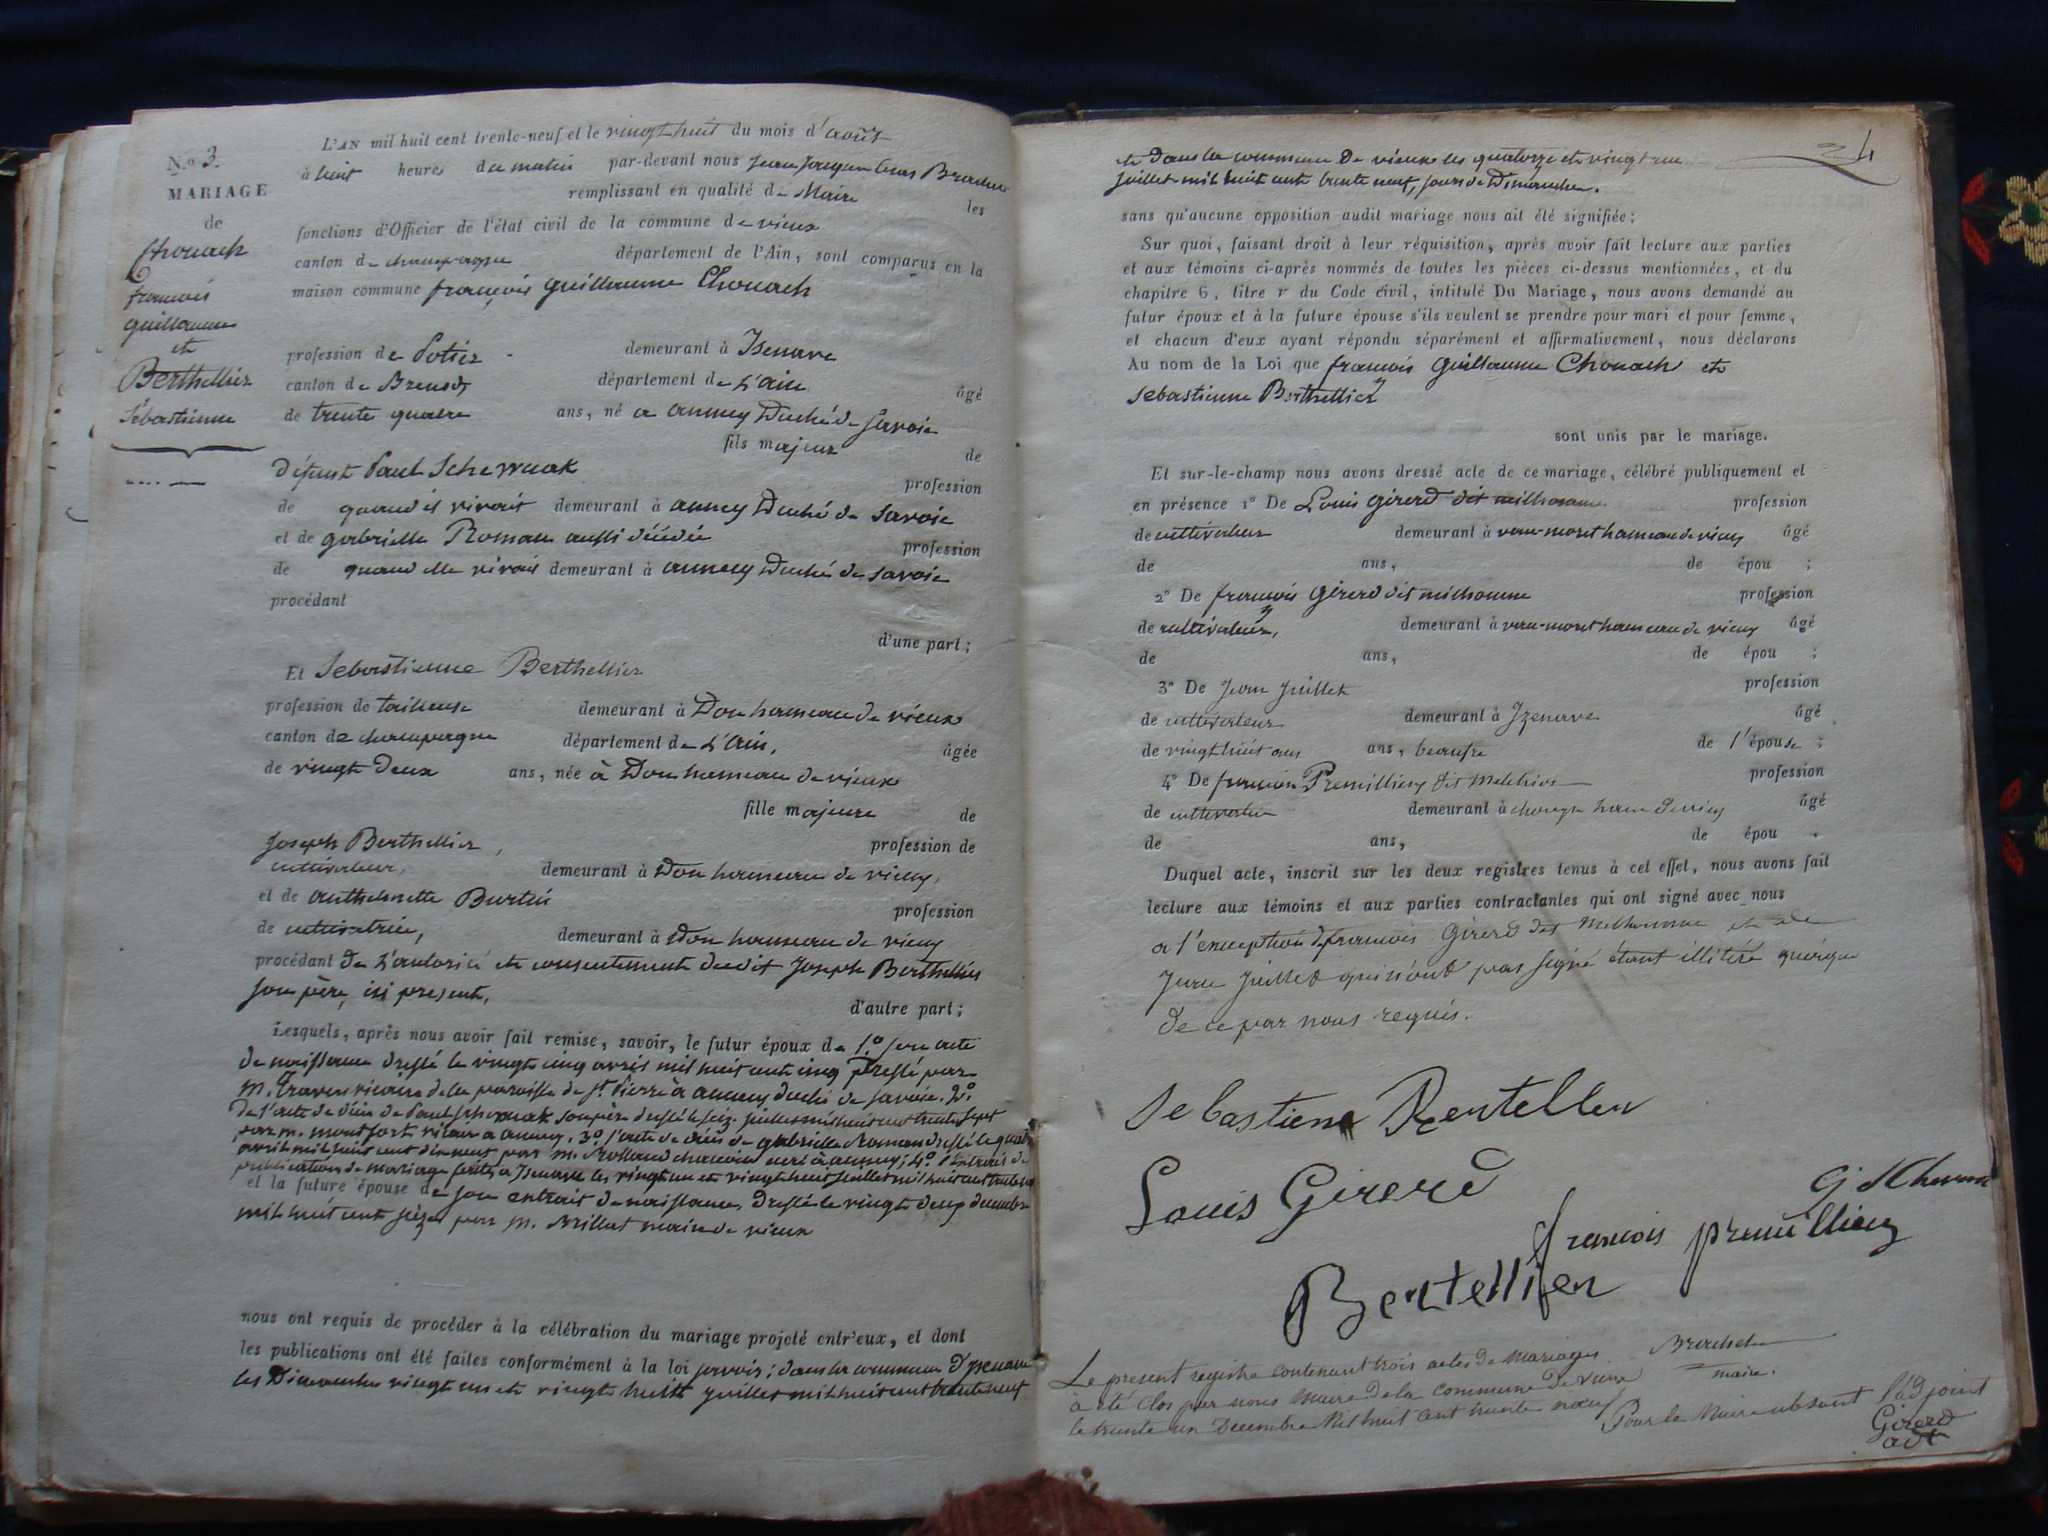 L'AN mil huit cent trente-neuf et le vingt huit du mois d'août
N.o 3.
à huit heures du matin par-devant nous Jean Jacques Brachet
MARIAGE
remplissant en qualité de Maire les
de
fonctions d'Officier de l'état civil de la commune de vieux
Chouach
canton de champagne département de l'Ain, sont comparus en la
maison commune françois guillaume Chouach
françois
guillaume
et
profession de Potier demeurant à Isenave
Berthellier
canton de Brenod département de L'ain âgé
Sébastienne
de trente quatre ans, né a annecy Duché de Savoie
fils majeur de
Défunt Paul Schewuak profession
de quand il vivait demeurant à annecy Duché de Savoie
et de gabrielle Roman aussi décédée profession
de quand elle vivait demeurant à annecy Duché de Savoie
procédant
d'une part;
Et Sebastienne Berthellier
profession de tailleuse demeurant à Don hameau de vieux
canton de champagne département de L'Ain, âgée
de vingt Deux ans, née à Don hameau de vieux
fille majeure de
Joseph Berthellier, profession de
cultivateur, demeurant à Don hameau de vieux,
et de anthelmette Burtin profession
de cultivatrice, demeurant à Don hameau de vieux
procédant de L'autorité et consentement dudit Joseph Berthellier
son père, ici present,
d'autre part;
Lesquels, après nous avoir fait remise, savoir, le futur époux de 1.o son acte
de naissance dressé le vingt cinq avril mil huit cent cinq Dressé par
M. vicaire de la paroisse de St Pierre à annecy duché de savoie. 2.o
de l'acte de décès de Paul son père dressé le seize juillet mil huit cent trente sept
par m. montfort vicaire a annecy. 3.o l'acte de décès de gabrielle Roman dressé le quatre
avril mil huit cent par m. Rolland chanoine curé à annecy; 4.o l'Extrait de
publication de mariage faites a Isenave les vingt un et vingt huit juillet mil huit cent trente neuf
et la future épouse de son extrait de naissance, Dressé le vingt deux decembre
mil huit cent seize par m. Brillat maire de vieux
nous ont requis de procéder à la célébration du mariage projeté entr'eux, et dont
les publications ont été faites conformément à la loi savoir; dans la commune d'yzenave
les Dimanches vingt un et vingt huit juillet mil huit cent trente neuf
4
et Dans la commune De vieux les quatorze et vingt un
juillet mil huit cent trente neuf, jours de Dimanche.
sans qu'aucune opposition audit mariage nous ait été signifiée;
Sur quoi, faisant droit à leur réquisition, après avoir fait lecture aux parties
et aux témoins ci-après nommés de toutes les pièces ci-dessus mentionnées, et du
chapitre 6, titre v du Code civil, intitulé Du Mariage, nous avons demandé au
futur époux et à la future épouse s'ils veulent se prendre pour mari et pour femme,
et chacun d'eux ayant répondu séparément et affirmativement, nous déclarons
Au nom de la Loi que françois Guillaume Chouach et
Sebastienne Berthellier
sont unis par le mariage.
Et sur-le-champ nous avons dressé acte de ce mariage, célébré publiquement et
en présence 1o De Louis Girerd dit milhomme profession
de cultivateur demeurant à vaux-moret hameau de vieux âgé
de ans, de épou ;
2o De françois Girerd dit milhomme profession
de cultivateur, demeurant à vaux-moret hameau de vieux âgé
de ans, de épou ;
3o De Jean Juillet profession
de cultivateur demeurant à Izenave âgé
de vingt huit ans ans, beaufre de l'épouse ;
4o De françois Premillieu dit Melchior profession
de cultivateur demeurant à âgé
de ans, de épou .
Duquel acte, inscrit sur les deux registres tenus à cet effet, nous avons fait
lecture aux témoins et aux parties contractantes qui ont signé avec nous
a l'exception de françois Girerd dit Milhomme et de
Jean Juillet qui n'ont pas signé étant illitéré
de ce par nous requis.
Sebastiene Bertellier
Louis Girerd
françois premillieu
Bertellier
Brachet
maire.
Le present registre contenant trois actes De Mariages
à été Clos par nous Maire De la Commune De vieux
le trente un Decembre Mil huit cent trente neuf
Pour le Maire absent l'adjoint
Girerd
adt